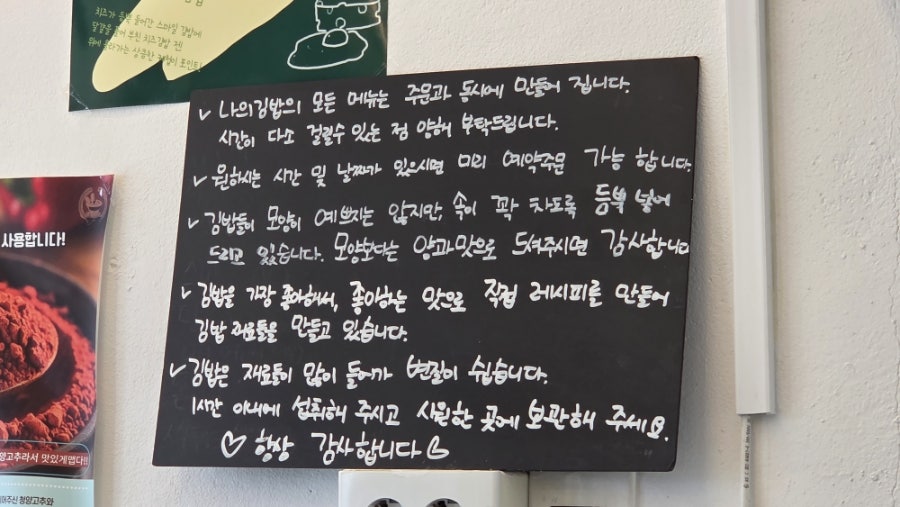 치즈가 듬뿍 들어간 스마일 김밥에
위에 올라가는 상큼한 피클이 포인트!
✓ 나의김밥의 모든 메뉴는 주문과 동시에 만들어 집니다.
시간이 다소 걸릴수 있는 점 양해 부탁드립니다.
✓ 원하시는 시간 및 날짜가 있으시면 미리 예약주문 가능 합니다.
✓ 김밥들이 모양이 예쁘지는 않지만, 속이 꽉 차도록 듬뿍 넣어
드리고 있습니다. 모양보다는 양과맛으로 드셔주시면 감사합니다
✓ 김밥을 가장 좋아해서, 좋아하는 맛으로 직접 레시피를 만들어
김밥 재료들을 만들고 있습니다.
✓ 김밥은 재료들이 많이 들어가 변질이 쉽습니다.
1시간 이내에 섭취해 주시고 시원한 곳에 보관해 주세요.
♡ 항상 감사합니다 ♡
사용합니다!
청양고추라서 맛있게맵다!!
청양고추와